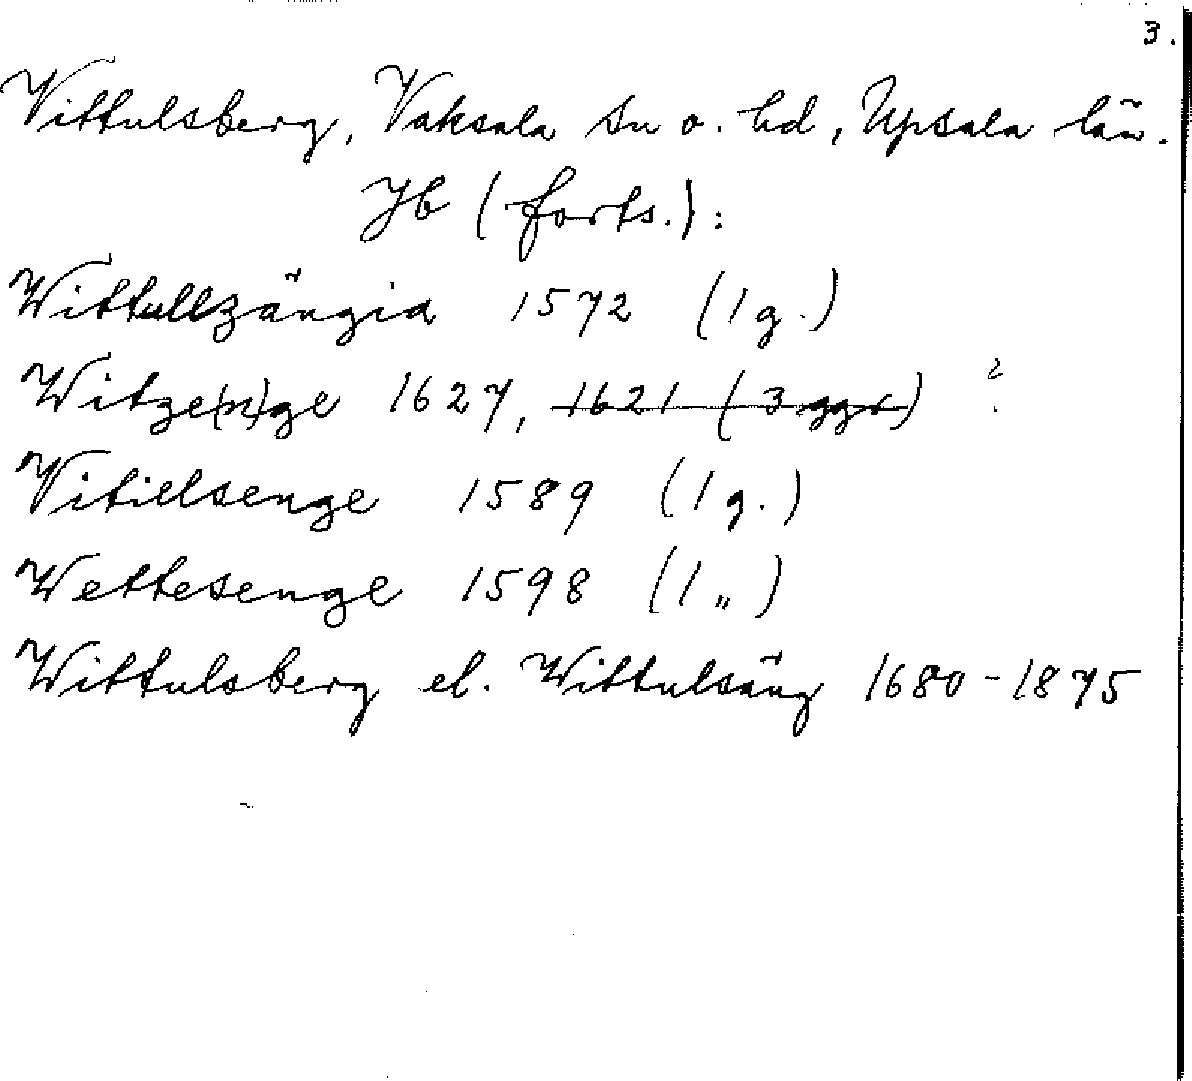 3.
Vittulsberg, Vaksala sn o. hd, Upsala län.
Jb (forts.):
Wittullzängia 1572 (1 g.)
Witze(n)ge 1627, 1621 (3 ggr) ?
Vitielsenge 1589 (1 g.)
Wettesenge 1598 (1 „)
Wittulsberg el. Wittulsäng 1680-1875